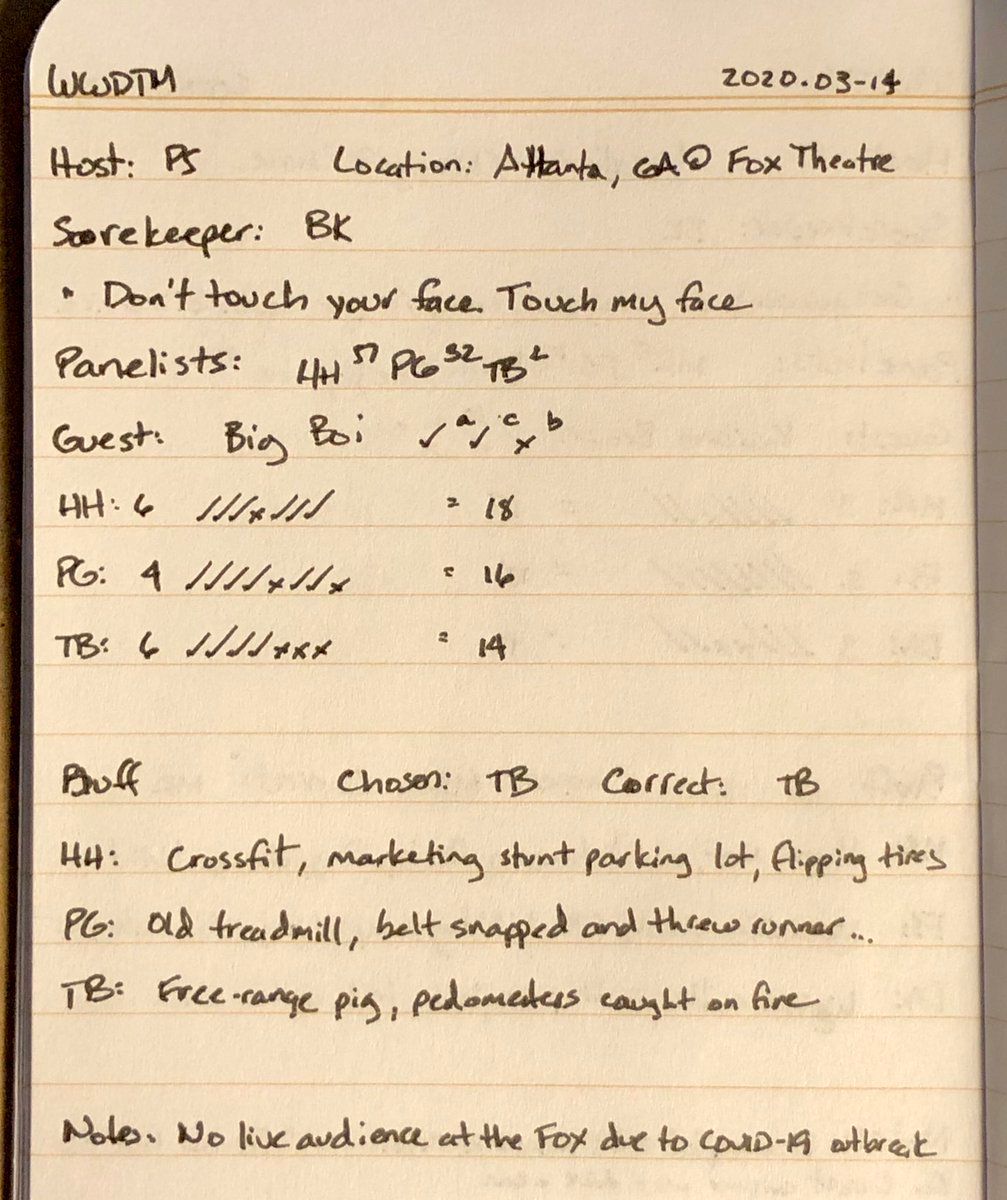 WWDTM 2020.03-14
Host: PS Location: Atlanta, GA @ Fox Theatre
Scorekeeper: BK
• Don't touch your face. Touch my face
Panelists: HH 57 PG 32 TB 2
Guest: Big Boi ✓ a ✓ c x b
HH: 6 ✓✓✓x✓✓✓ = 18
PG: 4 ✓✓✓✓x✓✓x = 16
TB: 6 ✓✓✓✓xxx = 14
Bluff Chosen: TB Correct: TB
HH: Crossfit, marketing stunt parking lot, flipping tires
PG: Old treadmill, belt snapped and threw runner...
TB: Free-range pig, pedometers caught on fire
Notes. No live audience at the Fox due to COVID-19 outbreak